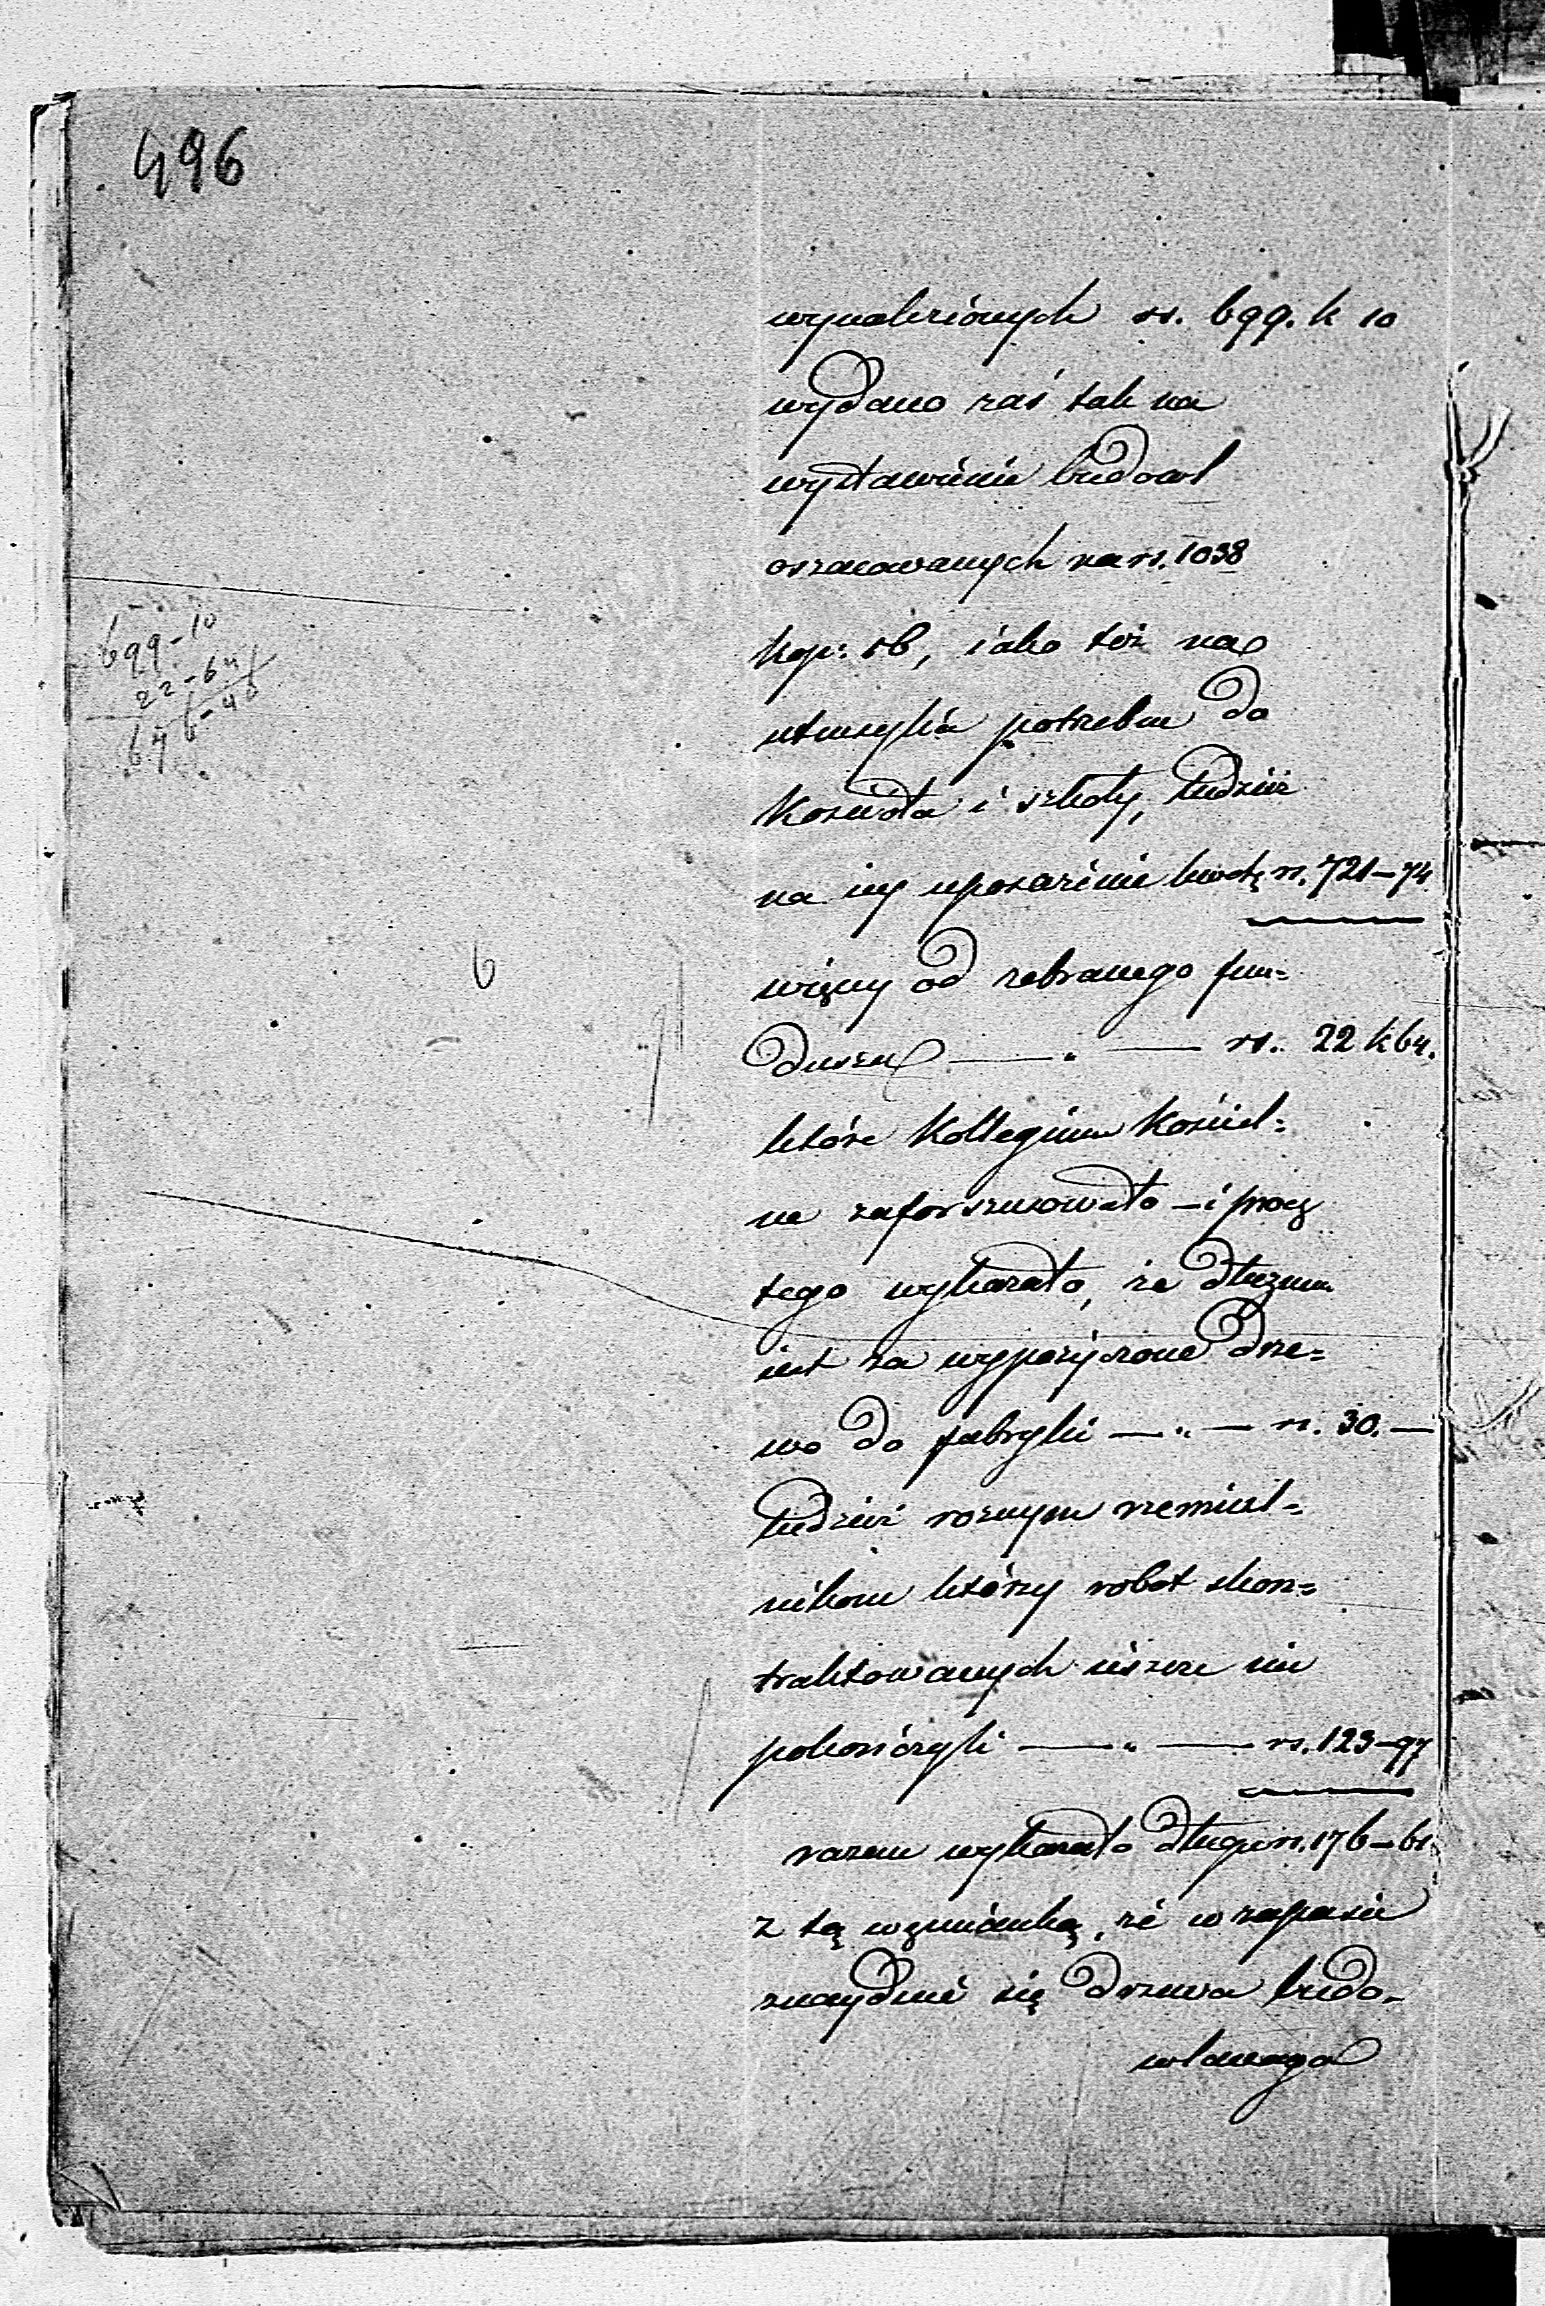 496
wynalezionych rs. 699. k 10
wydano zaś tak na
wystawienie budowl
oszacowanych na rs. 1038
kop: 16, iako też na
utensylia potrzebne do
Kościoła i szkoły, tudzież
na iey uposażenie kwotę rs. 721–74
699–10
22–64
646–46
więcey od zebranego fun=
duszu — „ — rs. 22 k 64.
które Kollegium Kościel=
ne zaforszusowało – i procz
tego wykazało, że dłużne
iest za wypożyczone drze=
wo do fabryki — „ — rs. 30. —
tudzież roznym rzemieśl=
nikom którzy robot skon=
traktowanych ieszcze nie
pokończyli — „ — rs. 123–97
razem wykazało długu rs. 176–61.
z tą wzmianką, że w zapasie
znayduie się drzewa budo=
wlanego
6